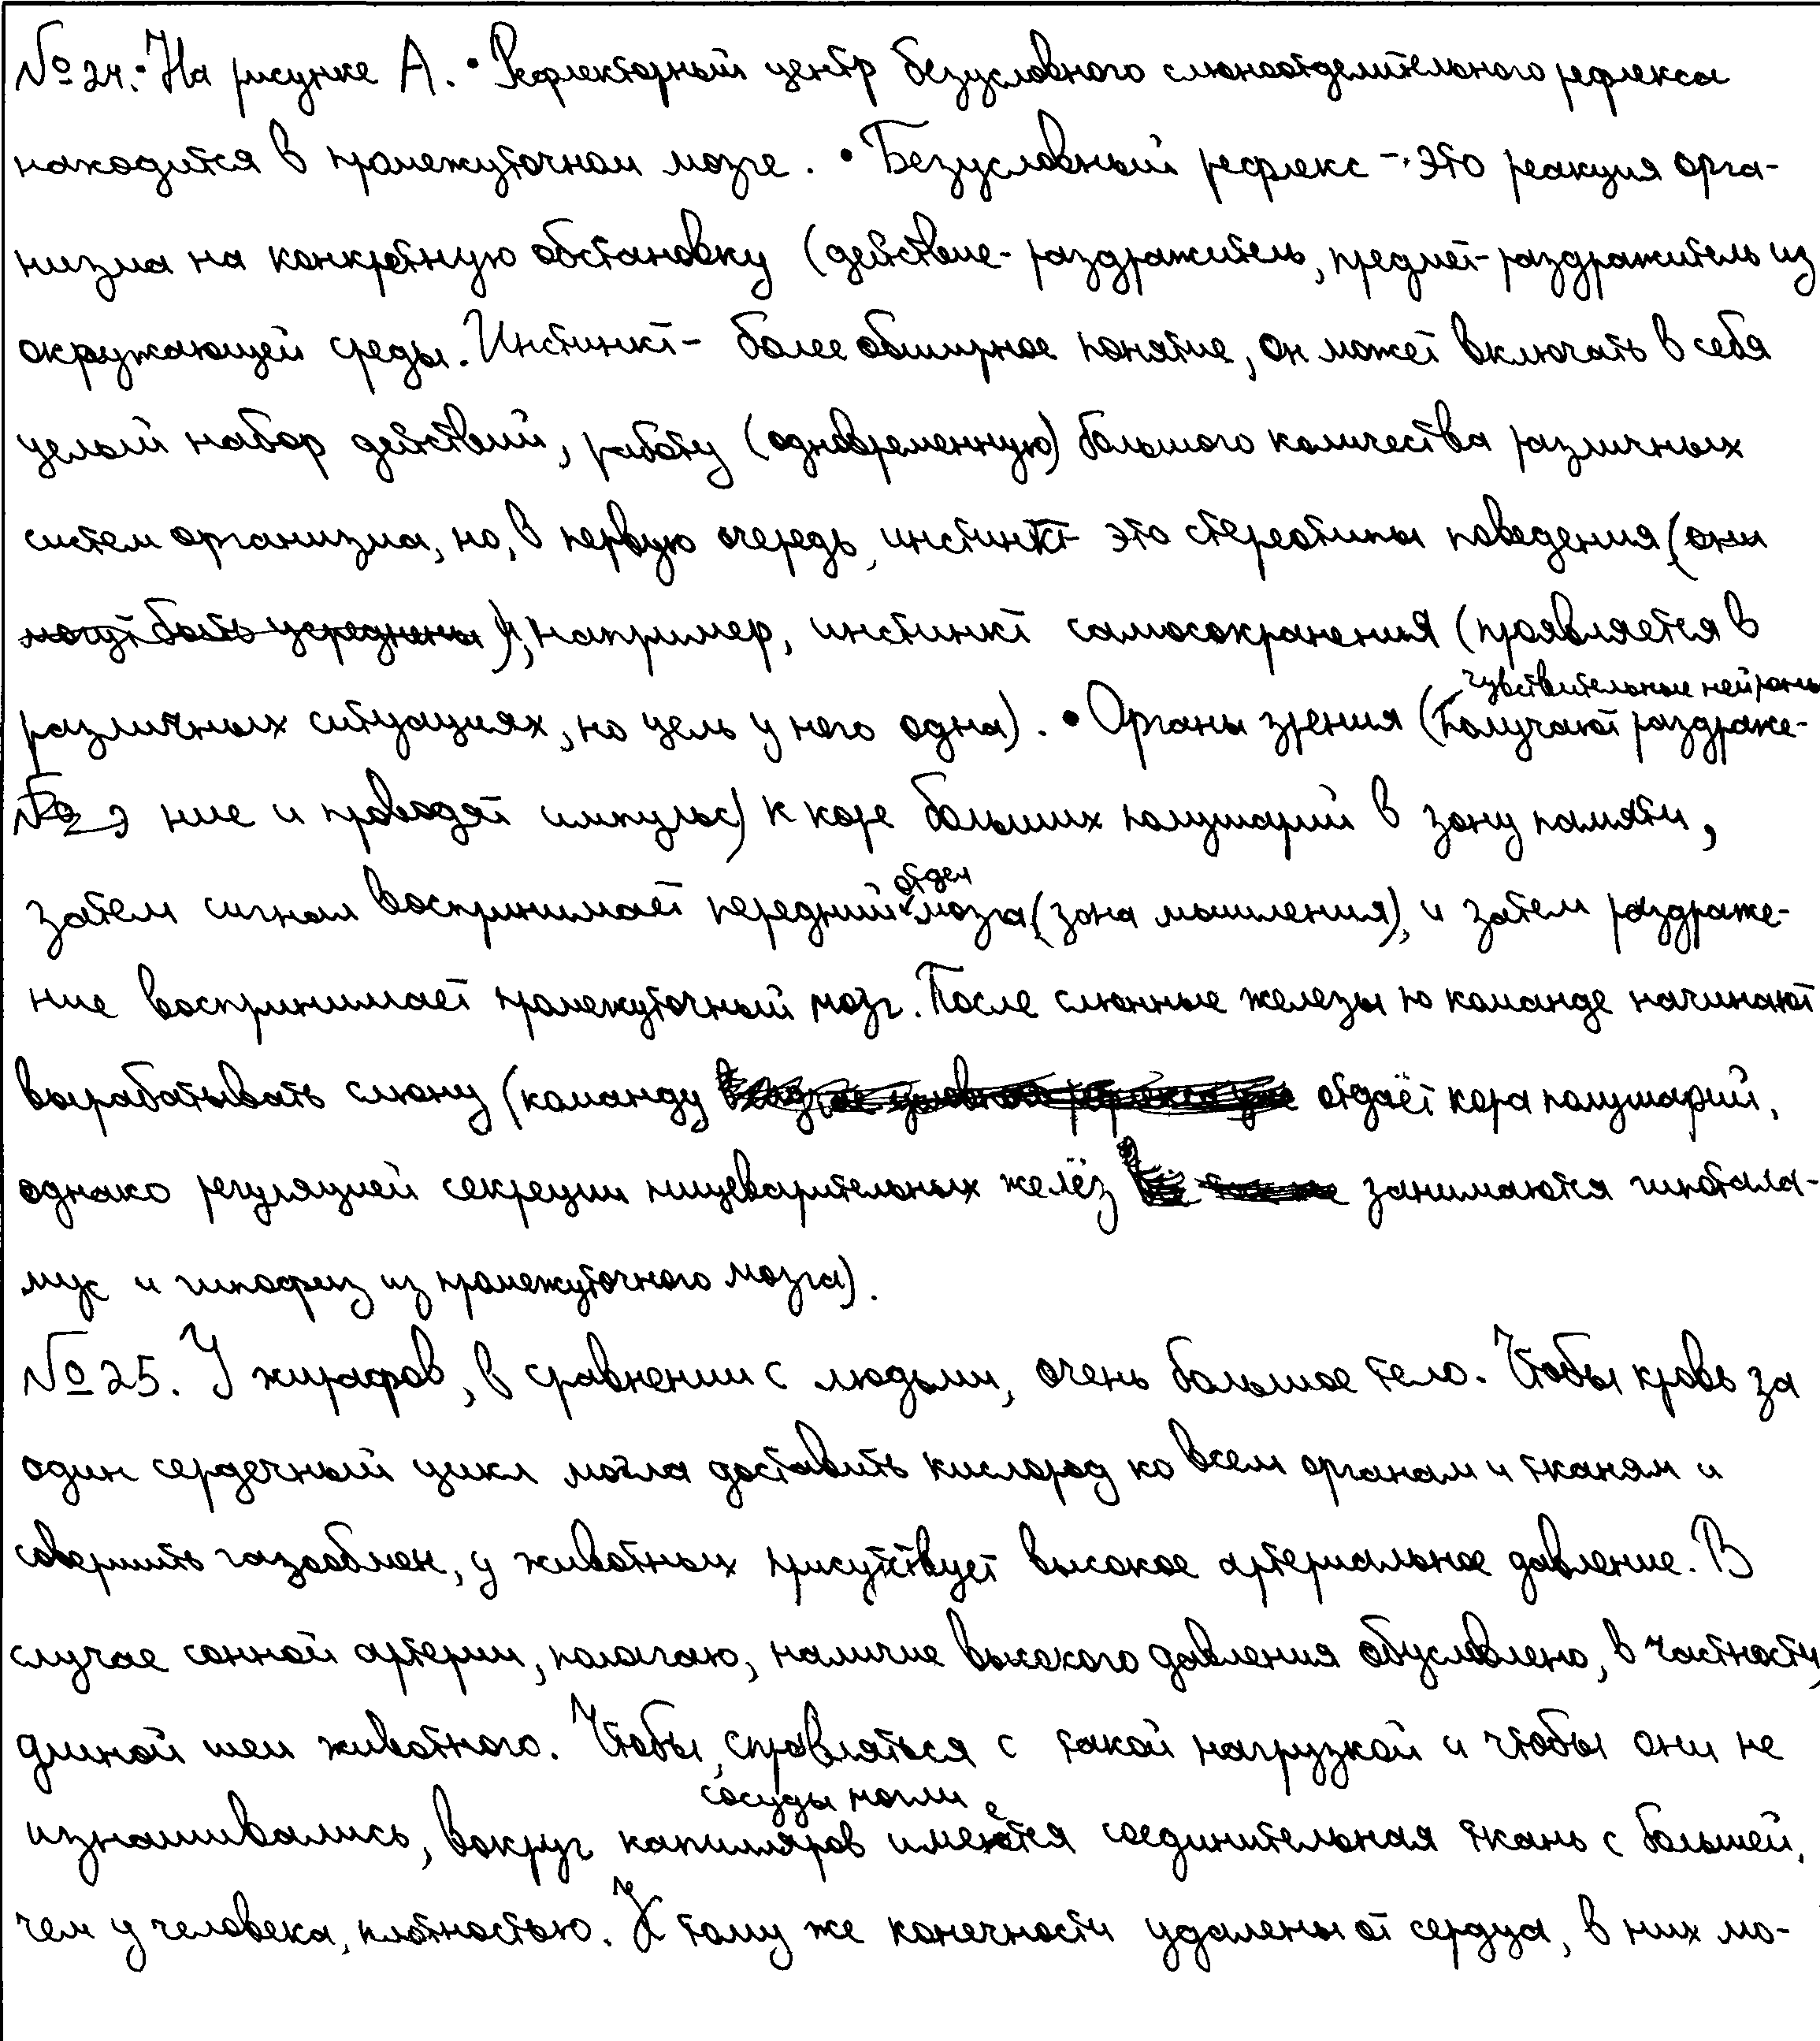 №24. • На рисунке А. • Рефлекторный центр безусловного слюноотделительного рефлекса
находится в промежуточном мозге. • Безусловный рефлекс - это реакция орга-
низма на конкретную обстановку (действие-раздражитель, предмет-раздражитель из
окружающей среды. Инстинкт - более обширное понятие, он может включать в себя
целый набор действий, работу (одновременную) большого количества различных
систем организма, но, в первую очередь, инстинкт это стереотипы поведения (они
могут быть усреднены), например, инстинкт самосохранения (проявляется в
различных ситуациях, но цель у него одна). • Органы зрения (чувствительные нейроны получают раздраже-
ние и проводят импульс) к коре больших полушарий в зону памяти,
затем сигнал воспринимает передний отдел мозга (зона мышления), и затем раздраже-
ние воспринимает промежуточный мозг. После слюнные железы по команде начинают
вырабатывать слюну (команду отдаёт кора полушарий,
однако регуляцией секреции пищеварительных желёз занимаются гипотала-
мус и гипофиз из промежуточного мозга).
№25. У жирафов, в сравнении с людьми, очень большое тело. Чтобы кровь за
один сердечный цикл могла доставить кислород ко всем органам и тканям и
совершить газообмен, у животных присутствует высокое артериальное давление. В
случае сонной артерии, полагаю, наличие высокого давления обусловлено, в частности,
длиной шеи животного. Чтобы сосуды могли справляться с такой нагрузкой и чтобы они не
изнашивались, вокруг капиляров имеется соединительная ткань с большей,
чем у человека, плотностью. К тому же конечности удалены от сердца, в них мо-